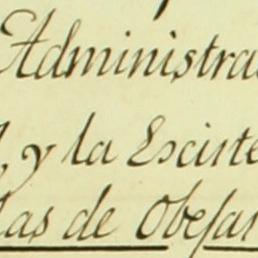 Administra
y la Esciste
las de Obejar